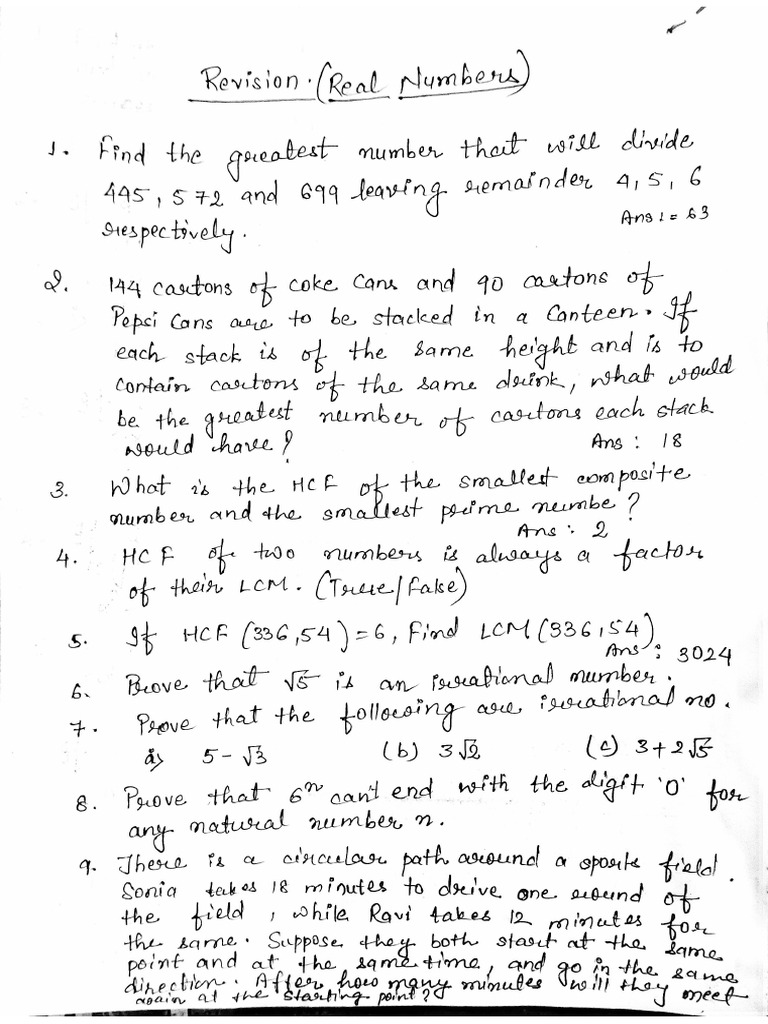 Revision. (Real Numbers)
1. Find the greatest number that will divide
445, 572 and 699 leaving remainder 4, 5, 6
respectively.
Ans: = 63
2. 144 cartons of coke cans and 90 cartons of
Pepsi Cans are to be stacked in a Canteen. If
each stack is of the same height and is to
contain cartons of the same drink, what would
be the greatest number of cartons each stack
would have?
Ans: 18
3. What is the HCF of the smallest composite
number and the smallest prime numbe?
Ans: 2
4. HCF of two numbers is always a factor
of their LCM. (True/False)
5. If HCF (336,54) = 6, Find LCM (336,54)
Ans: 3024
6. Prove that √5 is an irrational number.
7. Prove that the following are irrational no.
a) 5-√3 (b) 3√2 (c) 3+2√5
8. Prove that 6ⁿ can't end with the digit '0' for
any natural number n.
9. There is a circular path around a sports field.
Sonia takes 18 minutes to drive one round of
the field, while Ravi takes 12 minutes for
the same. Suppose they both start at the same
point and at the same time, and go in the same
direction. After how many minutes will they meet
again at the starting point?